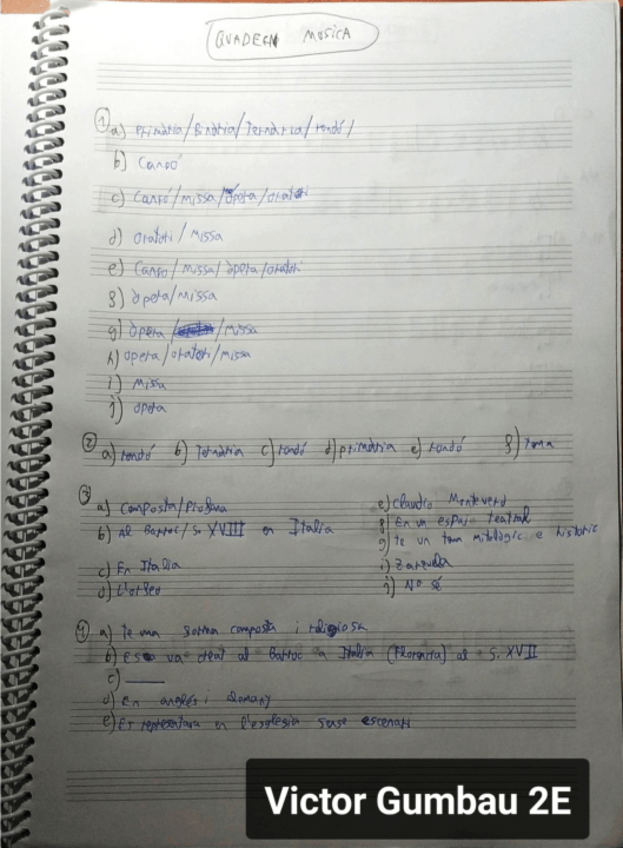 QUADERN MUSICA
1 a) Primària/Binària/Ternària/rondó/
b) Cançó
c) Cançó/missa/òpera/oratori
d) oratori / missa
e) Canso/missa/òpera/oratori
f) òpera/missa
g) òpera / /missa
h) opera/oratori/missa
i) Missa
j) opera
2 a) rondó b) Ternària c) rondó d) primària e) rondó f) tema
3 a) composta/Profana
b) Al Barroc/s. XVIII en Italia
c) En Italia
d) L'orfeo
e) Claudio Monteverd
f) En un espai teatral
g) te un tema mitològic e historic
i) Zarzuela
j) No sé
4 a) Te una forma composta i religiosa
b) Es va creat al Barroc a Italia (Florencia) al s. XVII
c)
d) En anglés i alemany
e) Es representava en l'esglesia sense escenari
Victor Gumbau 2E